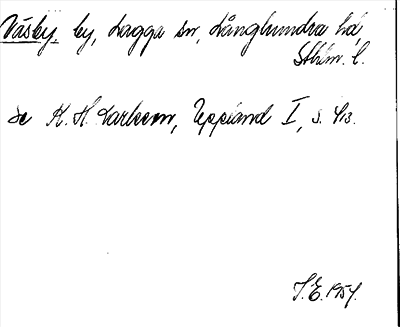 Väsby, by, Lagga sn, Långhundra hd,
Sthlm. l.
Se K. H. Karlsson, Uppland I, s. 413.
S.E. 1954.